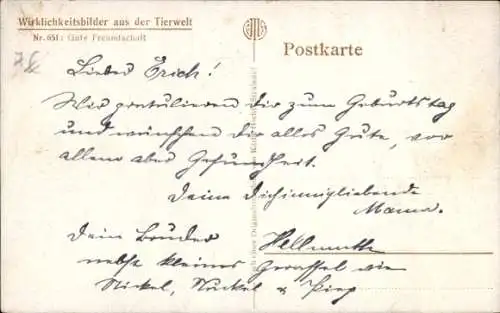 Wirklichkeitsbilder aus der Tierwelt
Nr. 651: Gute Freundschaft
Postkarte
Lieber Erich!
Wir gratulieren dir zum Geburtstag
und wünschen dir alles Gute, vor
allem aber Gesundheit.
Deine dich innigliebende
Mama.
Dein Bruder Hellmuth
nebst kleines Gerassel wie
Nickel, Nuckel &